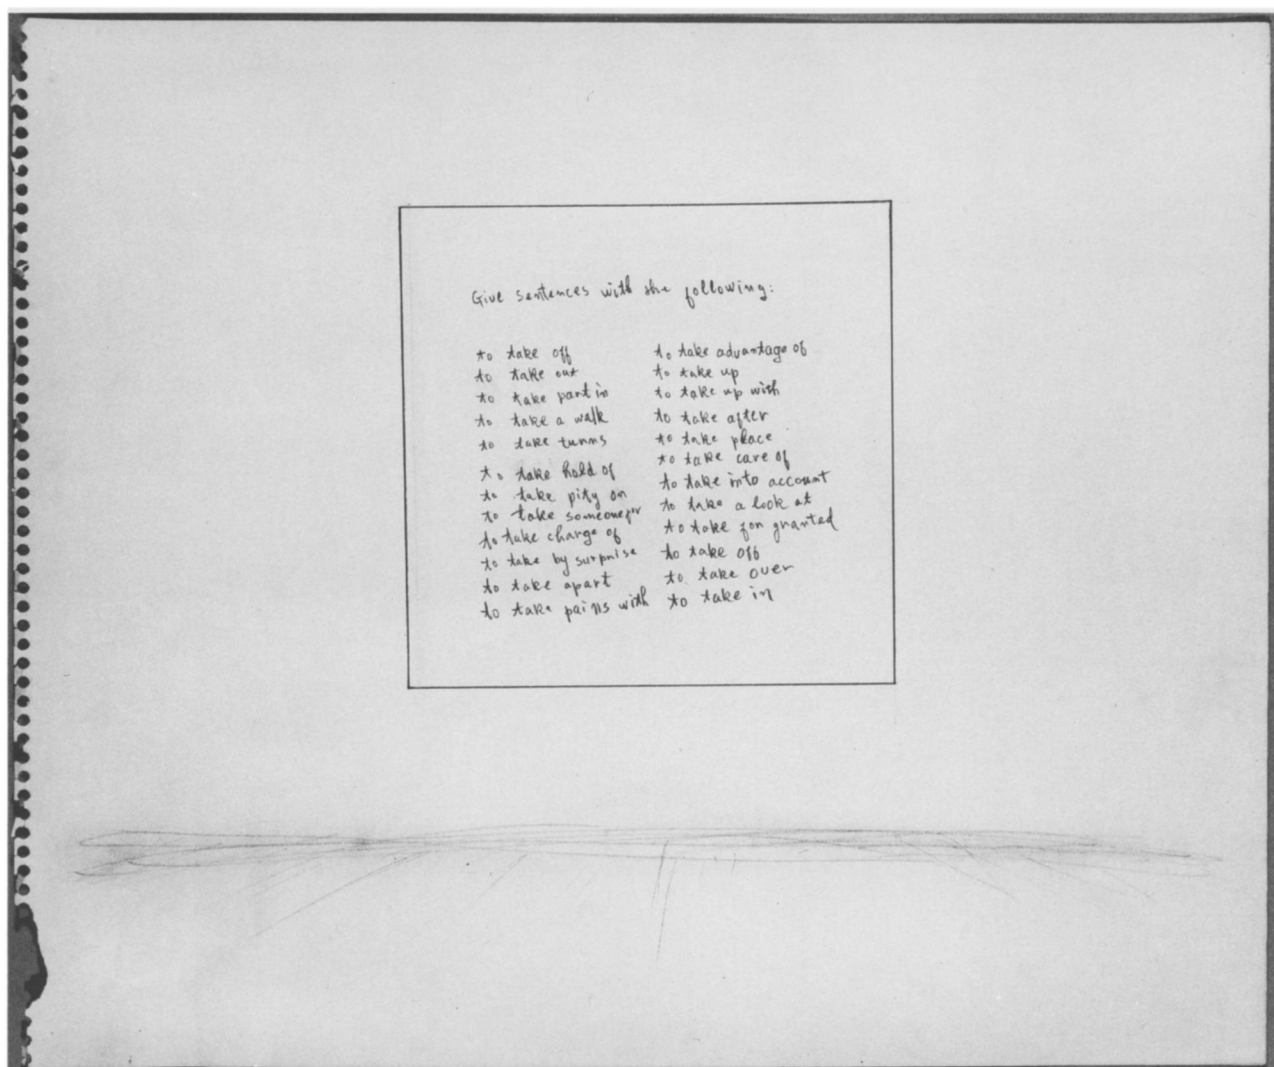 Give sentences with the following:
to take off
to take out
to take part in
to take a walk
to take turns
to take hold of
to take pity on
to take someone for
to take charge of
to take by surprise
to take apart
to take pains with
to take advantage of
to take up
to take up with
to take after
to take place
to take care of
to take into account
to take a look at
to take for granted
to take off
to take over
to take in